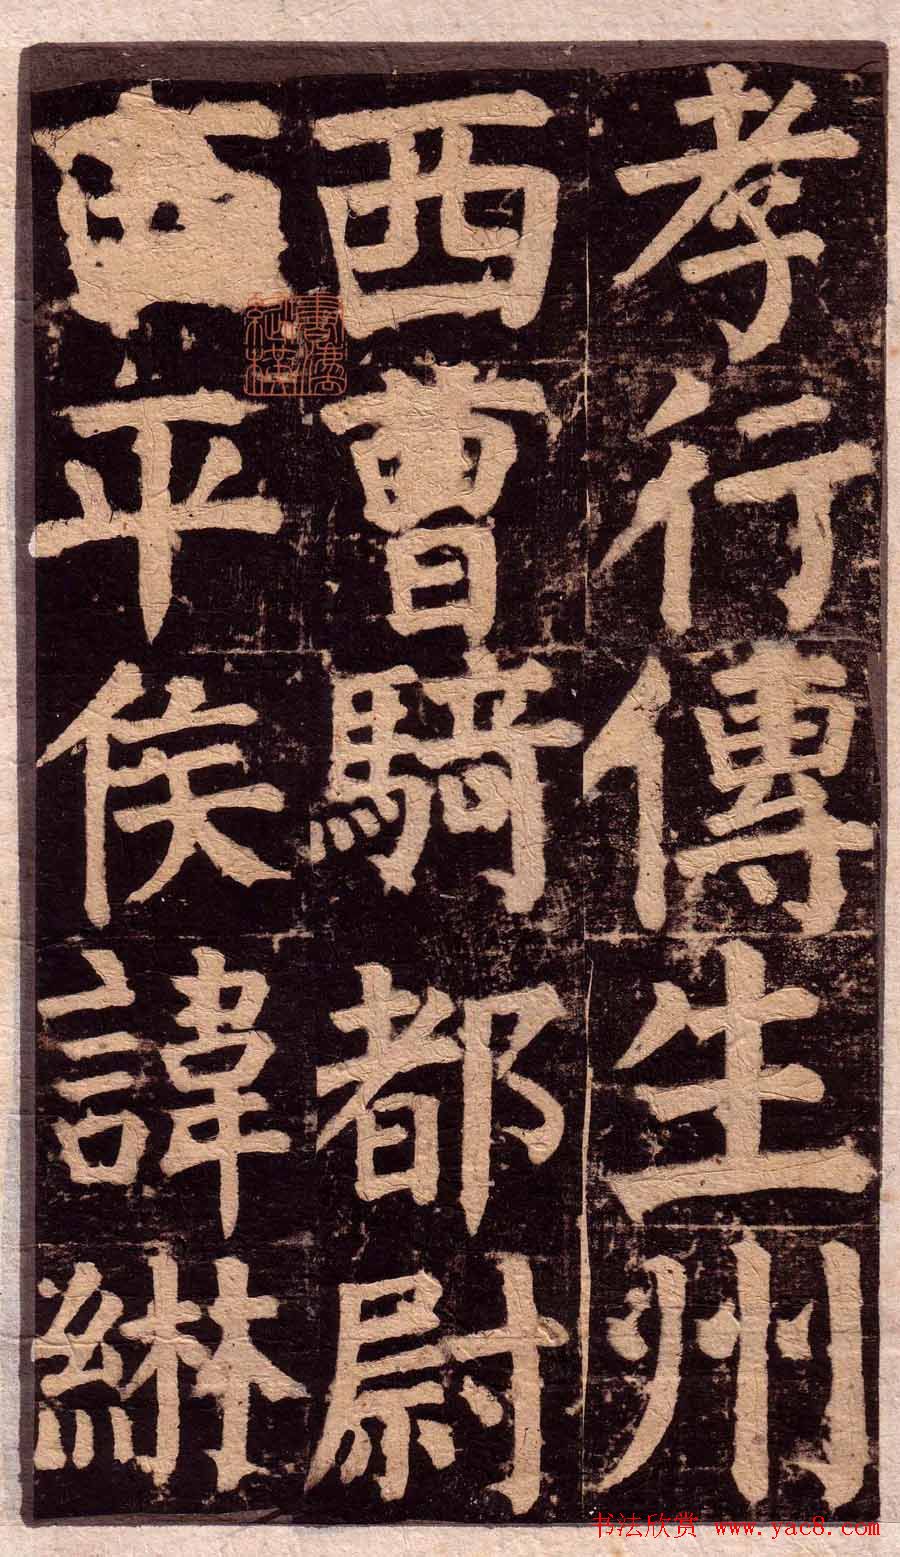 孝行傳生州
西曹騎都尉
西平侯諱綝
书法欣赏 www.yac8.com